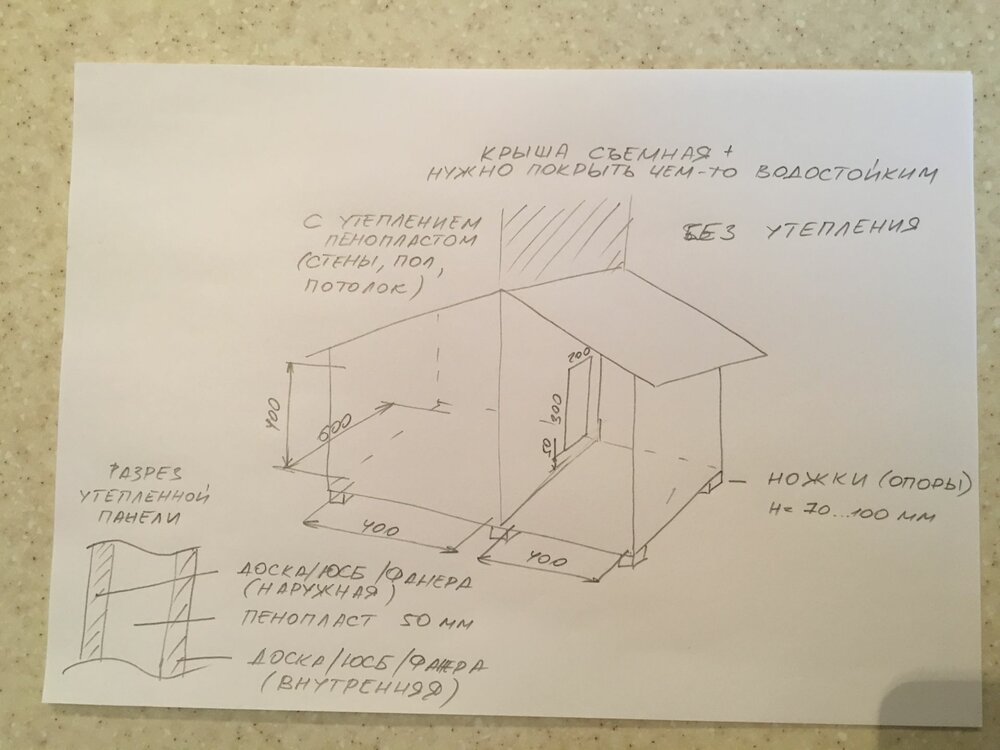 КРЫША СЪЕМНАЯ +
НУЖНО ПОКРЫТЬ ЧЕМ-ТО ВОДОСТОЙКИМ
С УТЕПЛЕНИЕМ
ПЕНОПЛАСТОМ
(СТЕНЫ, ПОЛ,
ПОТОЛОК)
БЕЗ УТЕПЛЕНИЯ
200
300
50
400
600
400
400
НОЖКИ (ОПОРЫ)
H= 70...100 ММ
РАЗРЕЗ
УТЕПЛЕННОЙ
ПАНЕЛИ
ДОСКА/ЮСБ/ФАНЕРА
(НАРУЖНАЯ)
ПЕНОПЛАСТ 50 ММ
ДОСКА/ЮСБ/ФАНЕРА
(ВНУТРЕННЯЯ)